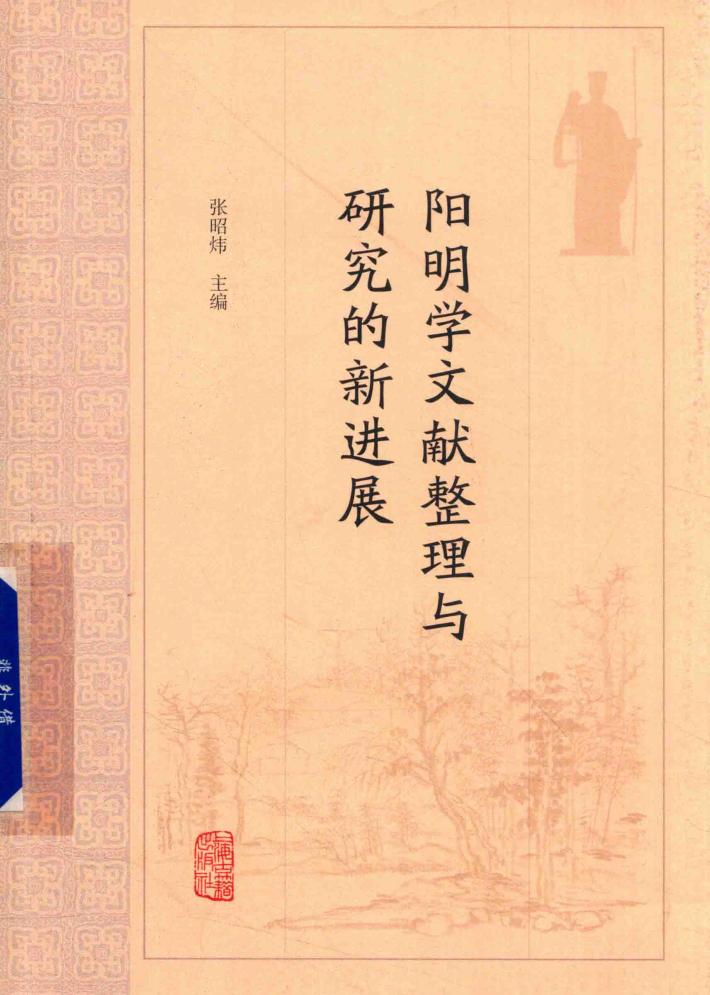 阳明学文献整理与
研究的新进展
张昭炜 主编
上海古籍
出版社
非外借